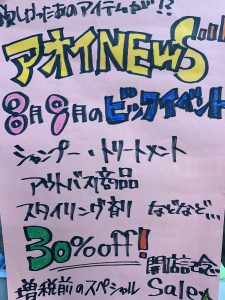 アオイNEWS
8月9月のビックイベント
シャンプー・トリートメント
アウトバス商品
スタイリング剤 などなど…
30%off!
増税前のスペシャル Sale